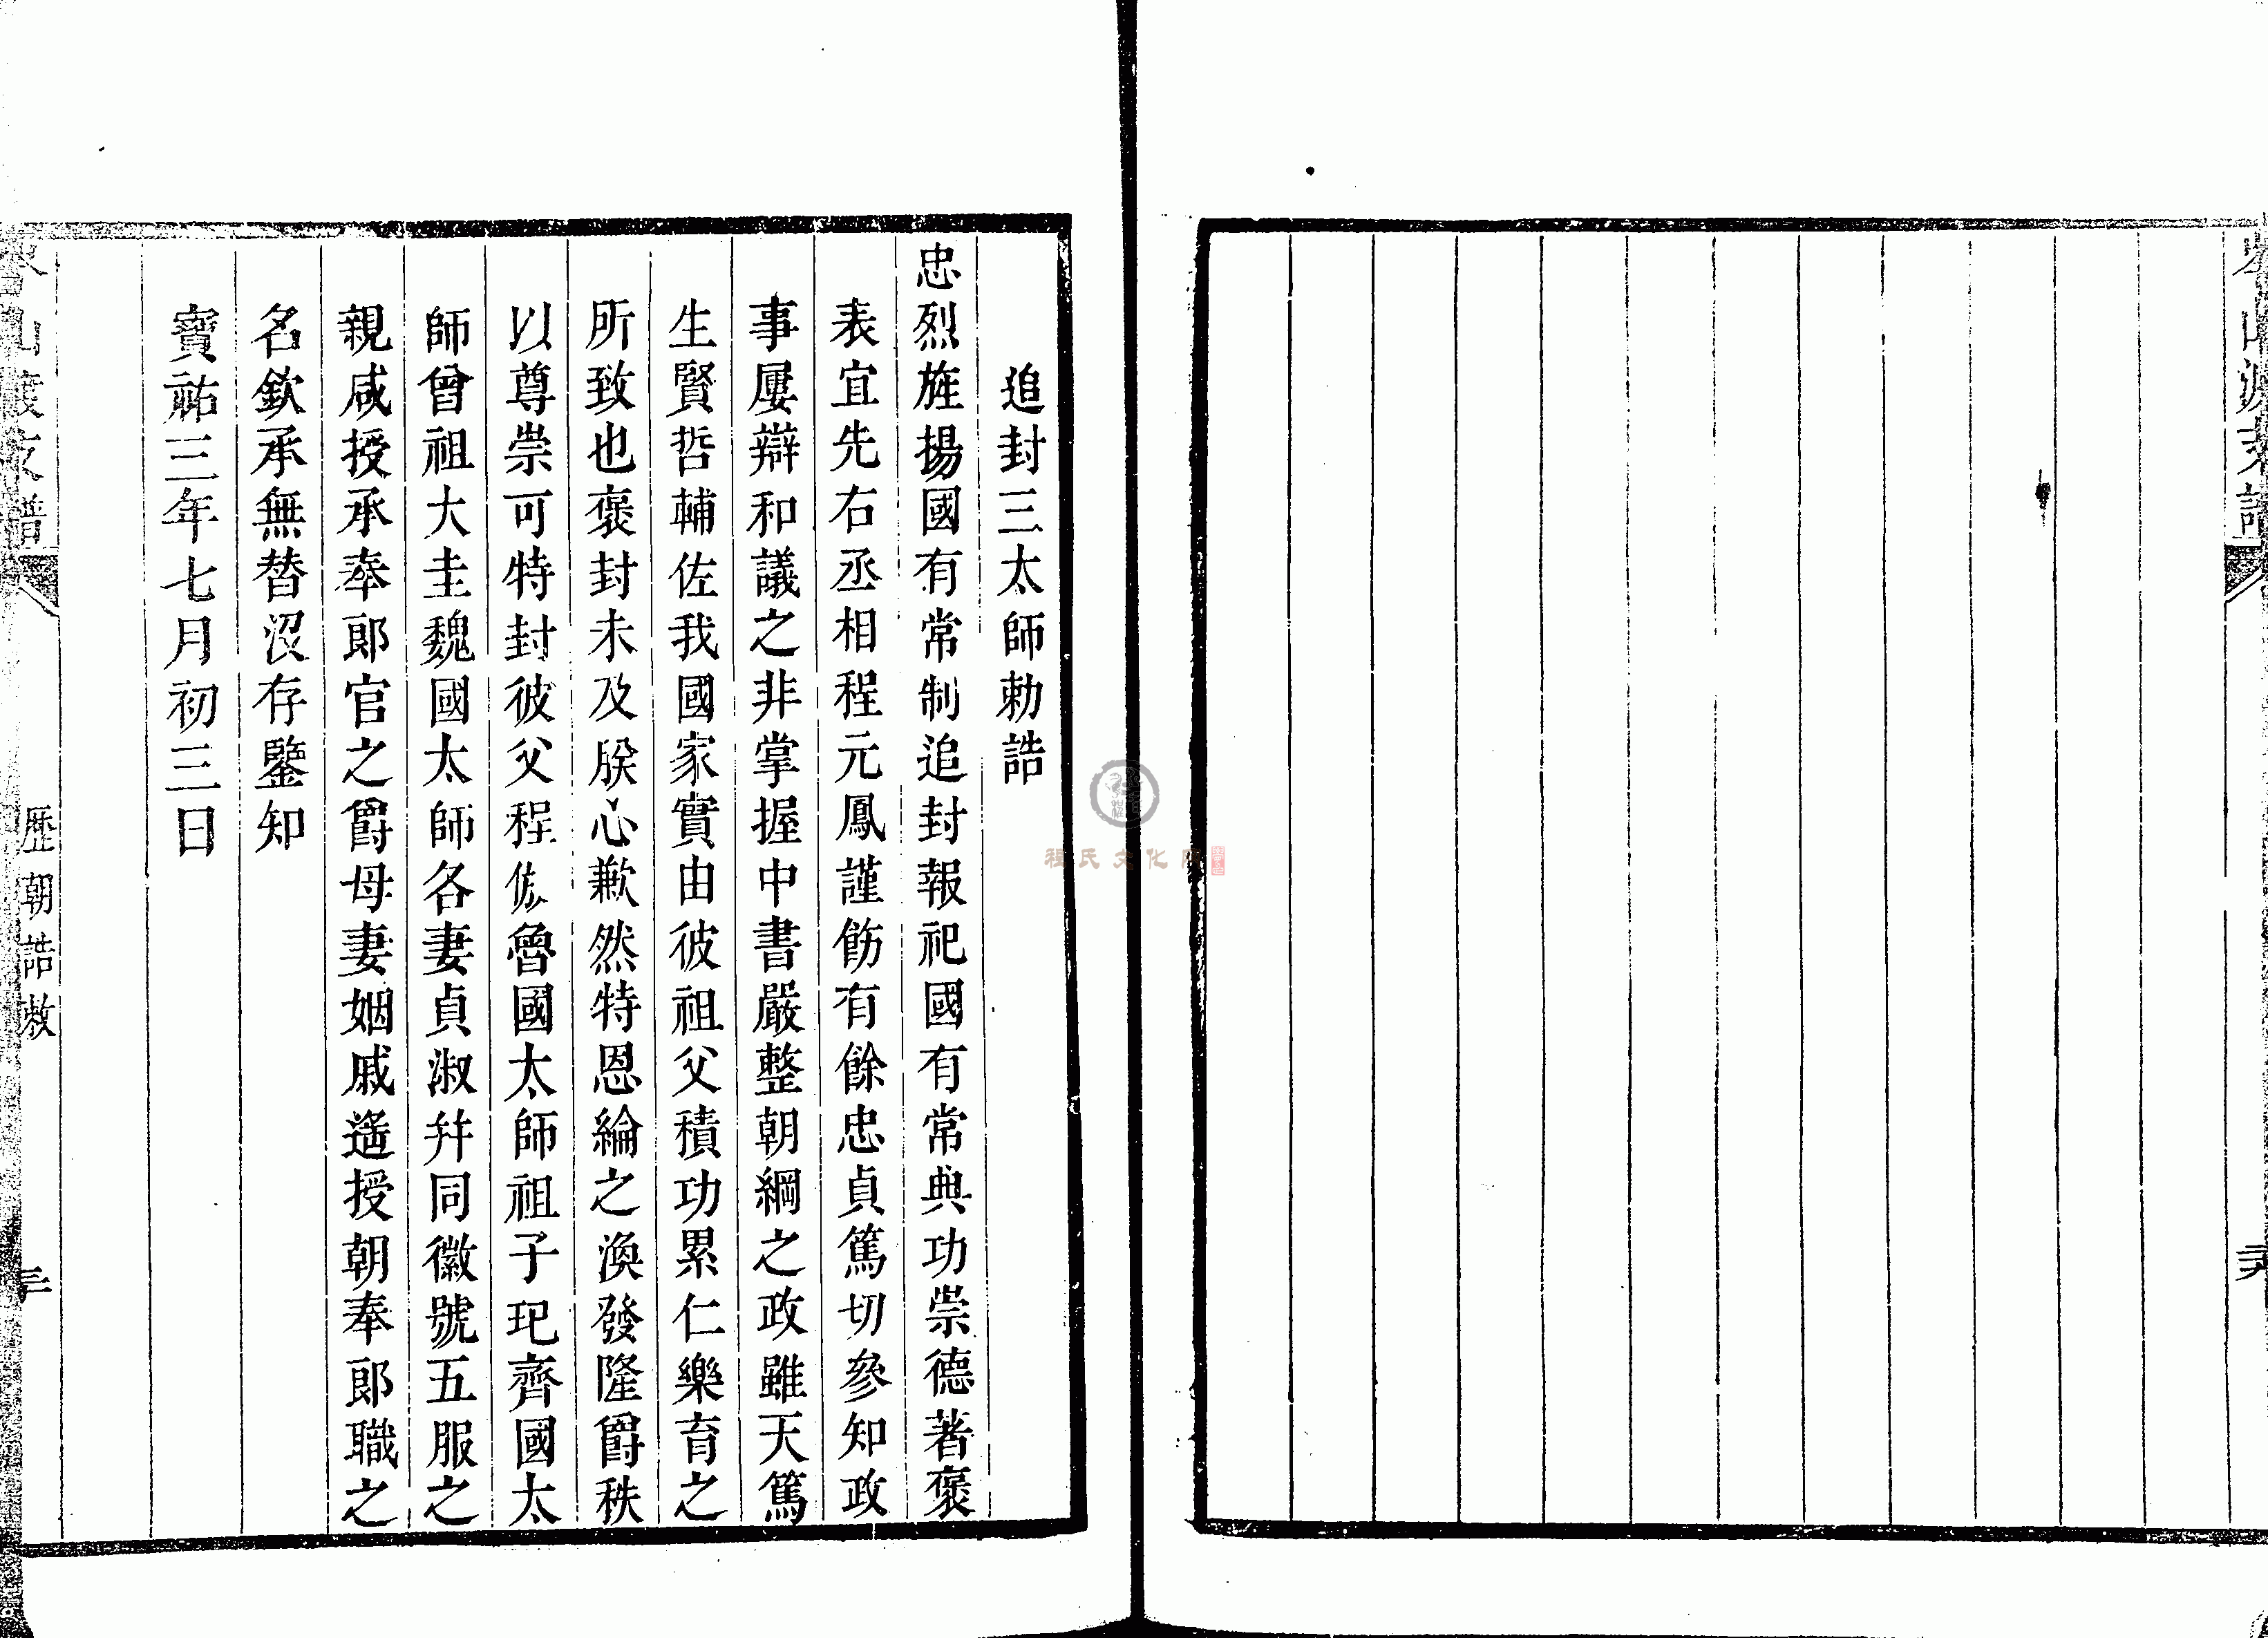 追封三太師勅誥
忠烈旌揚國有常制追封報祀國有常典功崇德著褒
表宜先右丞相程元鳳謹飭有餘忠貞篤切參知政
事屢辯和議之非掌握中書嚴整朝綱之政雖天篤
生賢哲輔佐我國家實由彼祖父積功累仁樂育之
所致也褒封未及朕心歉然特恩綸之渙發隆爵秩
以尊崇可特封彼父程　魯國太師祖子玘齊國太
師曾祖大圭魏國太師各妻貞淑幷同徽號五服之
親咸授承奉郎官之爵母妻姻戚遥授朝奉郎職之
名欽承無替没存鑒知
寶祐三年七月初三日
歷朝誥敕
程氏文化